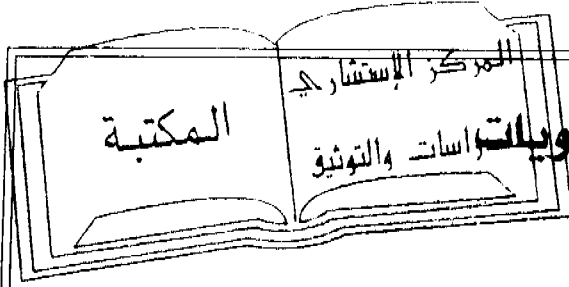 المركز الإستشاري
راسات والتوثيق
المكتبة